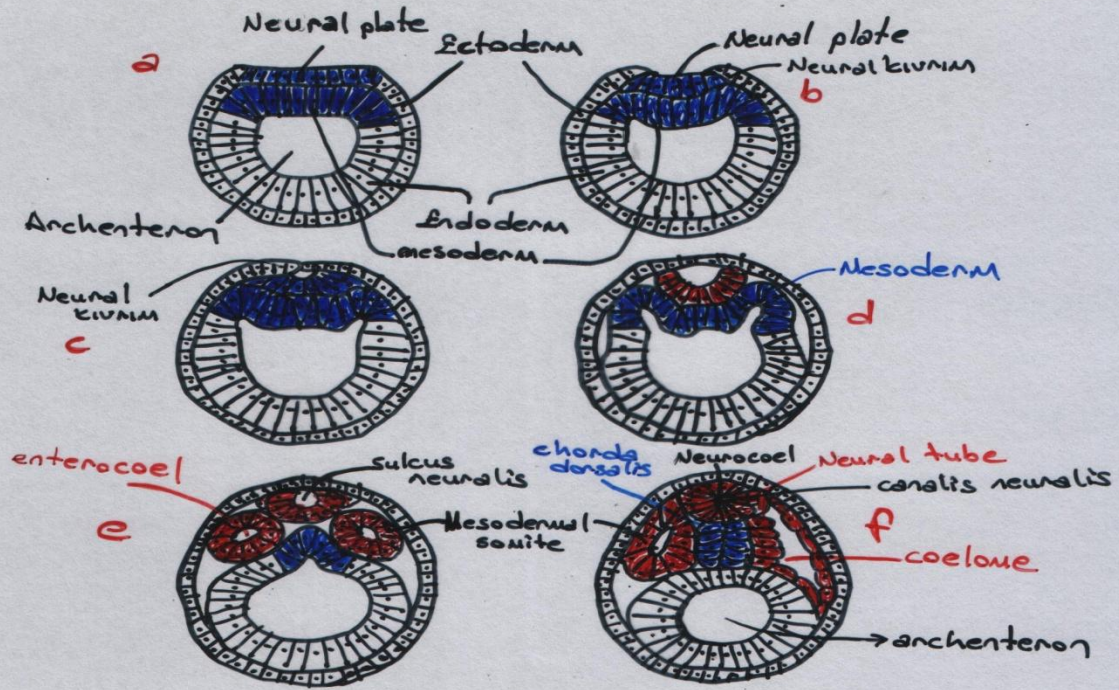 Neural plate
Ectoderm
a
Neural plate
Neural kıvrım
b
Archenteron
Endoderm
mesoderm
Neural
kıvrım
c
Mesoderm
d
enterocoel
e
sulcus
neuralis
Mesodermal
somite
chorda
dorsalis
Neurocoel
Neural tube
canalis neuralis
f
coelome
archenteron